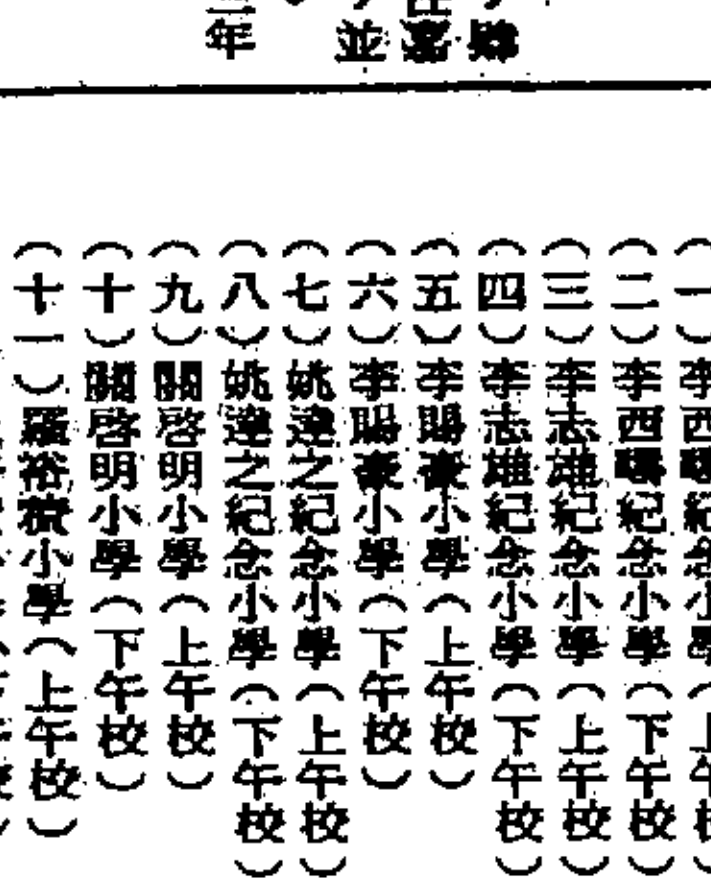 年
並
(一)李西疇紀念小學(上午校)
(二)李西疇紀念小學(下午校)
(三)李志雄紀念小學(上午校)
(四)李志雄紀念小學(下午校)
(五)李賜豪小學(上午校)
(六)李賜豪小學(下午校)
(七)姚達之紀念小學(上午校)
(八)姚達之紀念小學(下午校)
(九)關啓明小學(上午校)
(十)關啓明小學(下午校)
(十一)羅裕積小學(上午校)